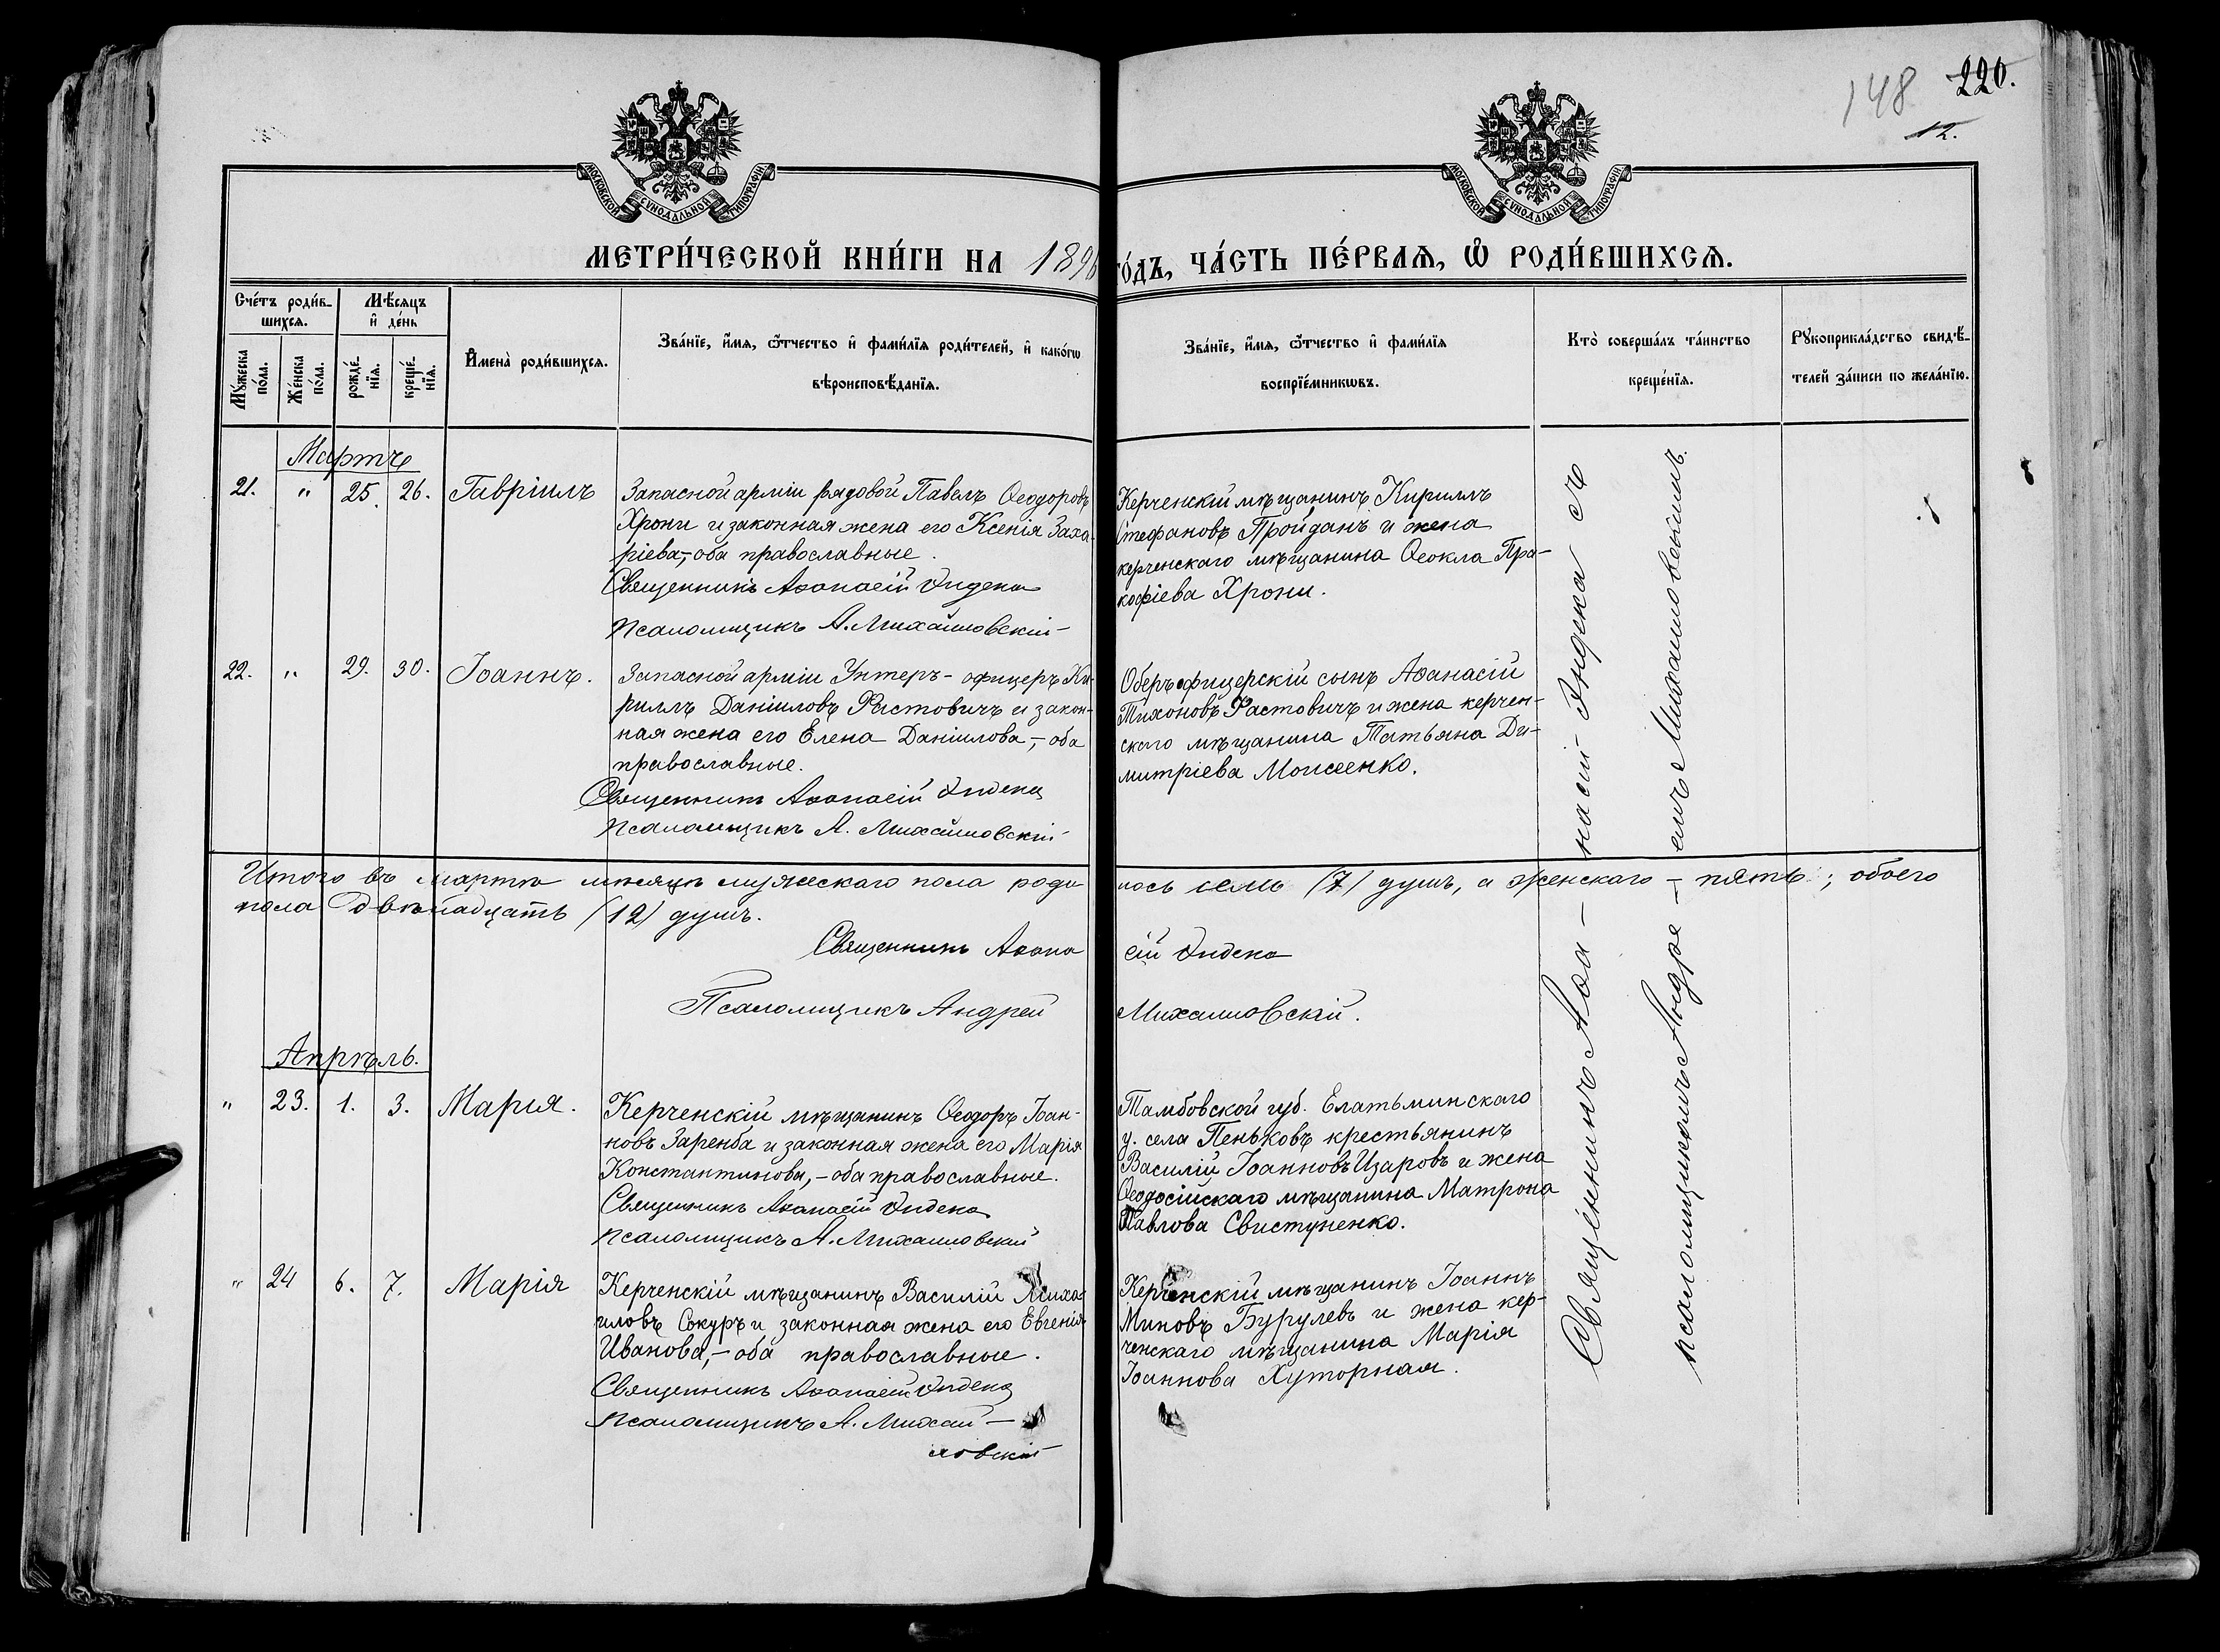 148 220.
12.
МОСКОВСКОЙ СѴНОДАЛЬНОЙ ТИПОГРАФІИ
МОСКОВСКОЙ СѴНОДАЛЬНОЙ ТИПОГРАФІИ
МЕТРИ́ЧЕСКОЙ КНИ́ГИ НА 1896 ГО́ДЪ, ЧА́СТЬ ПЕ́РВАѦ, Ѡ҆ РОДИ́ВШИХСѦ.
Сче́тъ роди́в-
шихсѧ.
Мѣ́сѧцъ
и҆ де́нь
Мꙋ́жеска
по́ла.
Же́нска
по́ла.
рожде́-
нїѧ.
креще́-
нїѧ.
И҆мена̀ роди́вшихсѧ.
Зва́нїе, и҆́мѧ, ѻ҆́тчество и҆ фами́лїѧ роди́телей, и҆ како́гѡ
вѣроисповѣ́данїѧ.
Зва́нїе, и҆́мѧ, ѻ҆́тчество и҆ фами́лїѧ
воспрїе́мникѡвъ.
Кто̀ соверша́лъ та́инство
креще́нїѧ.
Рꙋкоприкла́дство свидѣ́-
телей за́писи по жела́нїю.
Мартъ
21. " 25. 26. Гавріилъ
Запасной арміи рядовой Павелъ Ѳеодоровъ
Хрони и законная жена его Ксенія Заха-
ріева,- оба православные.
Священникъ Аѳанасій Индека
Псаломщикъ А. Михайловскій
Керченскій мѣщанинъ Кириллъ
Стефановъ Пройданъ и жена
керченскаго мѣщанина Ѳеокла Пра-
кофіева Хрони.
22. " 29. 30. Іоаннъ.
Запасной арміи Унтеръ-офицеръ Ки-
риллъ Даніиловъ Фастовичъ и закон-
ная жена его Елена Даніилова,- оба
православные.
Священникъ Аѳанасій Индека
Псаломщикъ А. Михайловскій
Оберъ офицерскій сынъ Аѳанасій
Тихоновъ Фастовичъ и жена керчен-
скаго мѣщанина Татьяна Ди-
митріева Моисеенко.
Итого въ мартѣ мѣсяцѣ мужескаго пола роди лось семь (7) душъ, а женскаго - пять; обоего
пола двѣнадцать (12) душъ.
Священникъ Аѳана сій Индека
Псаломщикъ Андрей Михайловскій.
Апрѣль.
" 23. 1. 3. Марія.
Керченскій мѣщанинъ Ѳеодоръ Іоан-
новъ Заренба и законная жена его Марія
Константинова,- оба православные.
Священникъ Аѳанасій Индека
Псаломщикъ А. Михайловскій
Тамбовской губ. Елатьминскаго
у. села Пеньковъ крестьянинъ
Василій Іоанновъ Изаровъ и жена
Ѳеодосійскаго мѣщанина Матрона
Павлова Свистуненко.
" 24 6. 7. Марія
Керченскій мѣщанинъ Василій Миха-
иловъ Сокуръ и законная жена его Евгенія
Иванова,- оба православные.
Священникъ Аѳанасій Индека
Псаломщикъ А. Михай-
ловскій
Керченскій мѣщанинъ Іоаннъ
Миновъ Бурулевъ и жена кер-
ченскаго мѣщанина Марія
Іоаннова Хуторная.
Священникъ Аѳа-насій Индека съ
псаломщикомъ Андре-емъ Михайловскимъ.